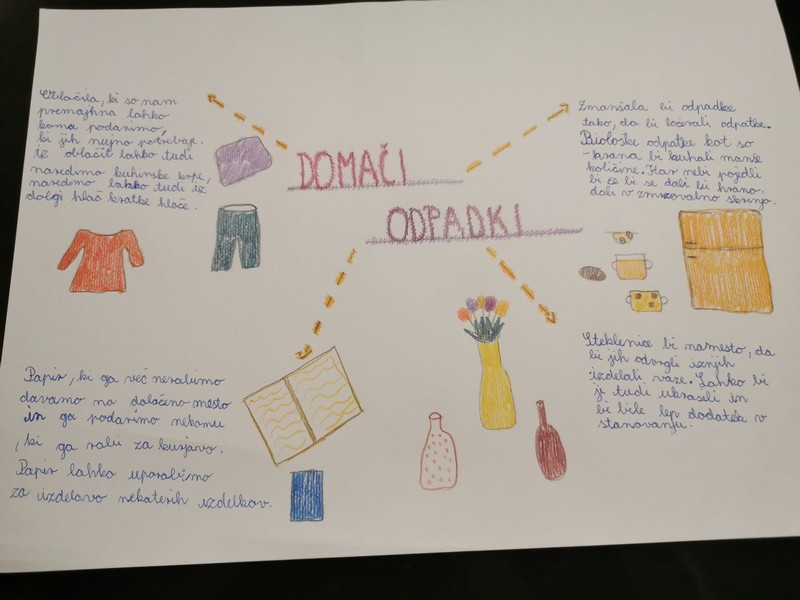 DOMAČI
ODPADKI
Oblačila, ki so nam
premajhna lahko
komu podarimo,
ki jih nujno potrebuje.
iz oblačil lahko tudi
naredimo kuhinske krpe,
naredimo lahko tudi iz
dolgi hlač kratke hlače.
Zmanšala bi odpadke
tako, da bi ločevali odpatke.
Biološke odpatke kot so
hrana bi kuhali manše
količine. Kar nebi pojedli
bi če bi se dali bi hrano
dali v zmrzovalno skrinjo.
Papir, ki ga več nerabimo
davamo na določeno mesto
in ga podarimo nekomu
, ki ga rabi za kurjavo.
Papir lahko uporabimo
za izdelavo nekaterih izdelkov.
Steklenice bi namesto, da
bi jih odvrgli iznjih
izdelali vaze. Lahko bi
ji tudi ukrasili in
bi bile lep dodatek v
stanovanju.